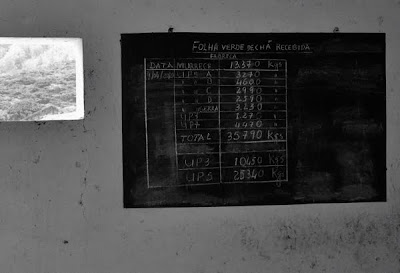 FOLHA VERDE DE CHÁ RECEBIDA
FABRICA
DATA MURRECE 13370 Kgs
UP5 A 3270 "
" B 4600 "
" C 2990 "
" D 2390 "
3230 "
UP2 1270 "
UP7 4470 "
TOTAL 35790 Kgs
UP3 10450 Kgs
UP5 25340 Kgs